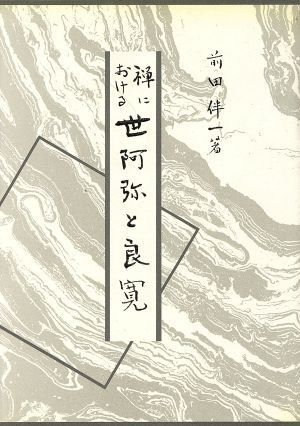 前田伴一著
禅に
おける
世阿弥と良寛